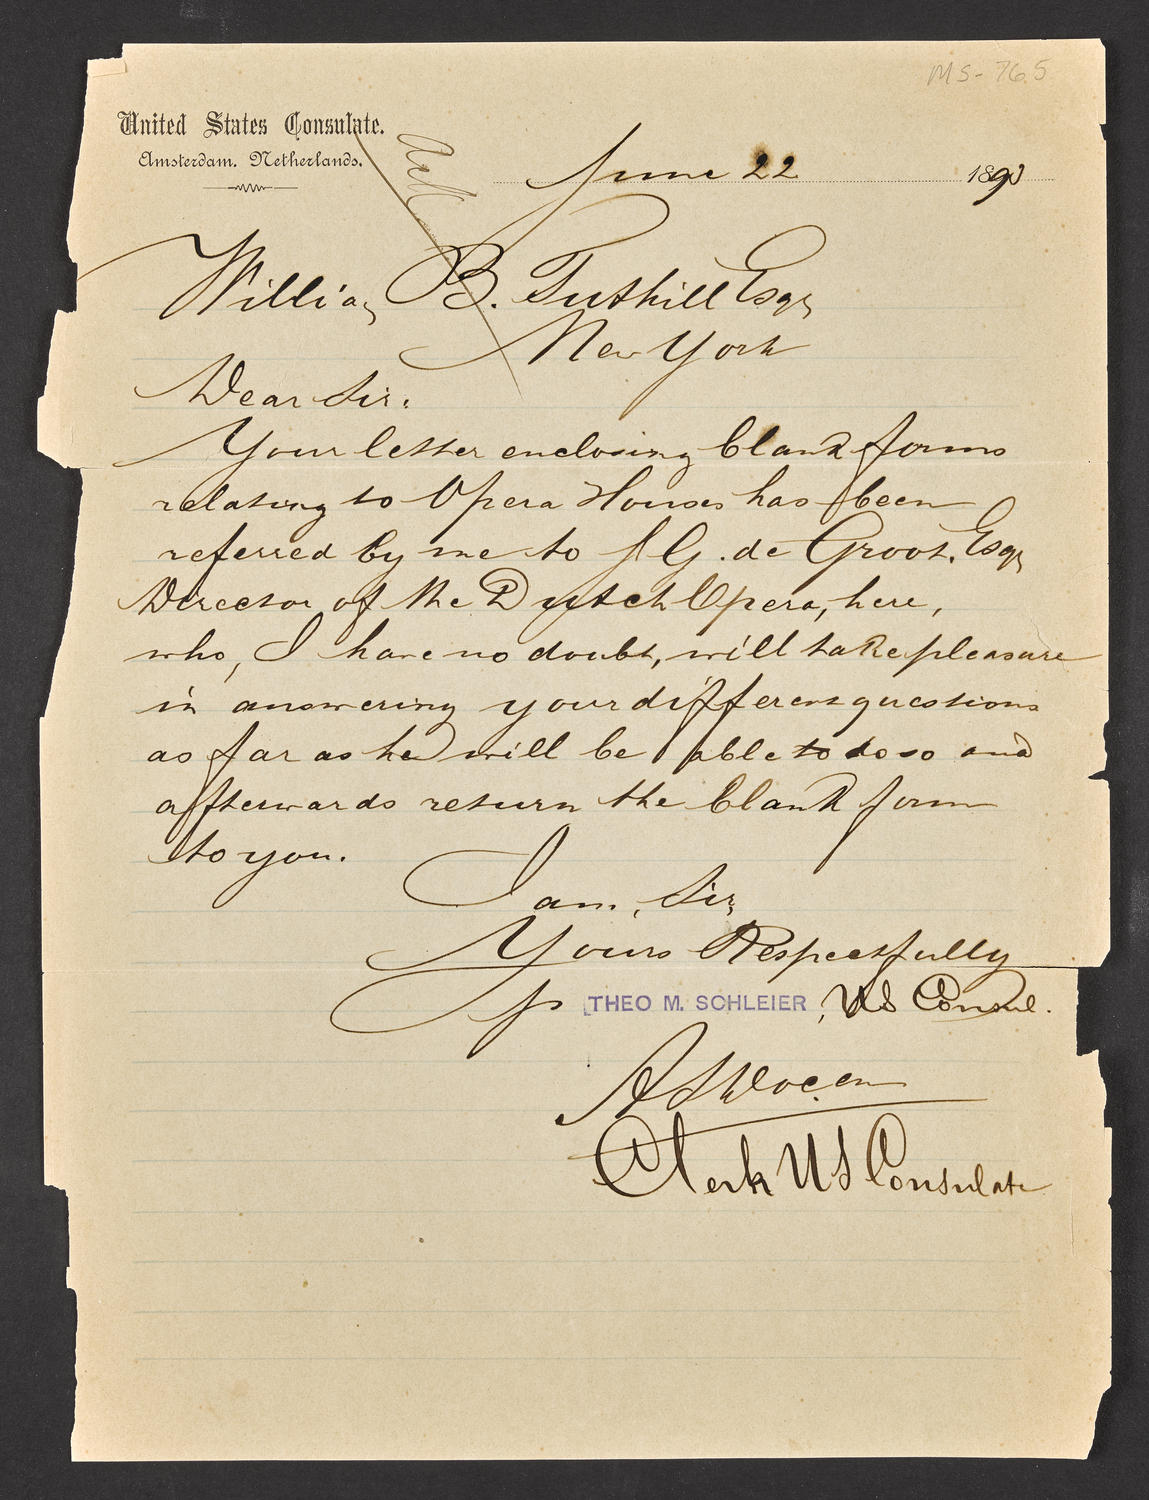 MS-765
United States Consulate.
Amsterdam. Netherlands.
June 22 1890
William B. Tuthill Esqr
New York
Dear Sir.
Your letter enclosing blank forms
relating to Opera Houses has been
referred by me to J G. de Groot. Esqr
Director of the Dutch Opera, here,
who, I have no doubt, will take pleasure
in answering your different questions
as far as he will be able to do so and
afterwards return the blank form
to you.
I am, Sir,
Yours Respectfully
p THEO M. SCHLEIER, US Consul.
Clerk US Consulate